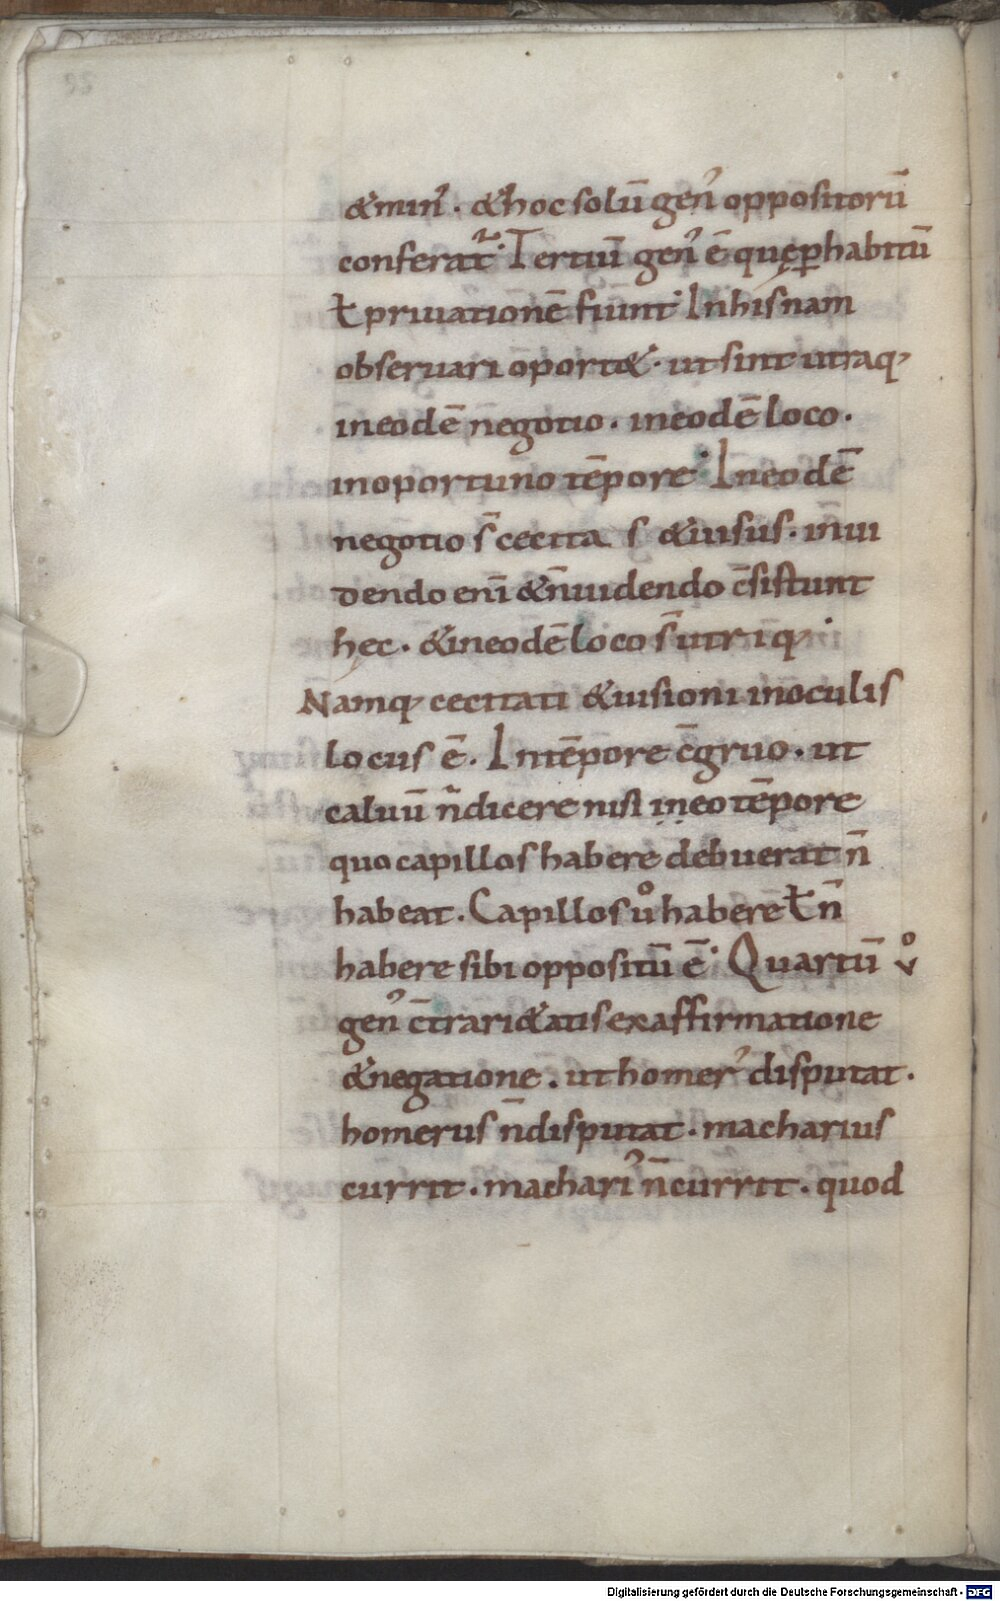 &min᾽. &hoc solū gen᾽ oppositorū
conferat᷑. Tertiū gen᾽ ē quę ꝑ habitū
ł priuationē fiunt. In his nam
obseruari oport&. ut sint utraq;
in eodē negotio. in eodē loco.
in oportuno tēpore. In eodē
negotio s̄ cecita s &uisus. in̄ ui
dendo eni &n̄ uidendo c̄sistunt
hęc. &in eodē loco s̄ utriq;.
Namq; cecitati &uisioni in oculis
locus ē. In tēpore c̄gruo. ut
caluū n̄ dicere nisi in eo tēpore
quo capillos habere debuerat n̄
habeat. Capillos uͦ habere ł n̄
habere sibi oppositū ē. Quartū vͦ
gen᾽ c̄trari&atis ex affirmatione
&negatione. ut homer᾽ disputat.
homerus n̄ disputat. macharius
currit. machari᾽ n̄ currit. quod
Digitalisierung gefördert durch die Deutsche Forschungsgemeinschaft - DFG